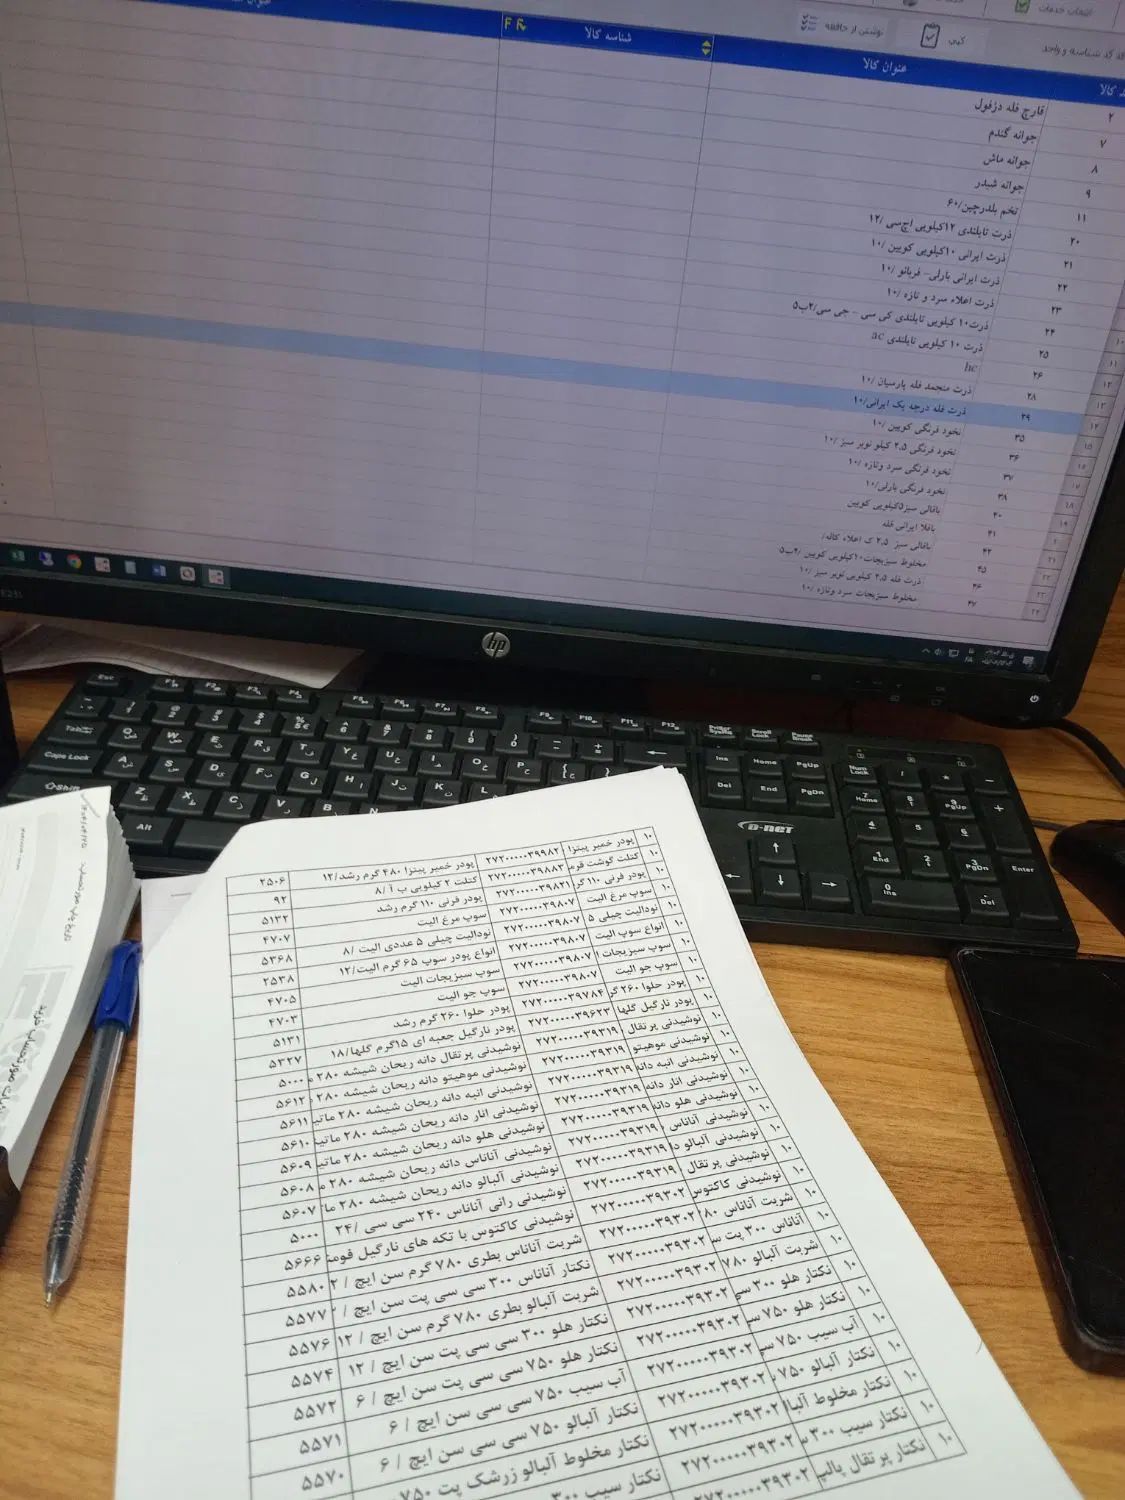 انتخاب خدمات
کپی
نویس از حافظه
کد شناسه و واحد
کالا
عنوان کالا
شناسه کالا
عنوان
۲ قارچ فله دزفول
۷ جوانه گندم
۸ جوانه ماش
۹ جوانه شبدر
۱۱ تخم بلدرچین/۶۰
۲۰ ذرت تایلندی ۱۲کیلویی اچ‌سی /۱۲
۲۱ ذرت ایرانی ۱۰کیلویی کوپین /۱۰
۲۲ ذرت ایرانی بارلی- فربانو /۱۰
۲۳ ذرت اعلاء سرد و تازه /۱۰
۲۴ ذرت۱۰ کیلویی تایلندی کی سی - جی سی/۲ب۵
۲۵ ذرت ۱۰ کیلویی تایلندی ac
۲۶ hc
۲۸ ذرت منجمد فله پارسیان /۱۰
۲۹ ذرت فله درجه یک ایرانی/۱۰
۳۵ نخود فرنگی کوپین /۱۰
۳۶ نخود فرنگی ۲.۵ کیلو نوبر سبز /۱۰
۳۷ نخود فرنگی سرد وتازه /۱۰
۳۸ نخود فرنگی بارلی/۱۰
۴۰ باقالی سبز۵کیلویی کوپین
۴۱ باقلا ایرانی فله
۴۲ باقالی سبز ۲.۵ ک اعلاء کاله/
۴۵ مخلوط سبزیجات۱۰کیلویی کوپین /۲ب۵
۴۶ ذرت فله ۲.۵ کیلویی نوبر سبز /۱۰
۴۷ مخلوط سبزیجات سرد وتازه /۱۰
hp
D-NET
۱۰ پودر خمیر پیتزا ۲۷۲۰۰۰۰۰۳۹۹۸۲ پودر خمیر پیتزا ۴۸۰ گرم رشد/۱۲ ۲۵۰۶
۱۰ کتلت گوشت قرم ۲۷۲۰۰۰۰۰۳۹۸۸۳ کتلت ۲ کیلویی ب آ /۸ ۹۲
۱۰ پودر فرنی ۱۱۰ گر ۲۷۲۰۰۰۰۰۳۹۸۲۱ پودر فرنی ۱۱۰ گرم رشد ۵۱۳۲
۱۰ سوپ مرغ الیت ۲۷۲۰۰۰۰۰۳۹۸۰۷ سوپ مرغ الیت ۴۷۰۷
۱۰ نودالیت چیلی ۵ ۲۷۲۰۰۰۰۰۳۹۸۰۷ نودالیت چیلی ۵ عددی الیت /۸ ۵۳۶۸
۱۰ انواع سوپ الیت ۲۷۲۰۰۰۰۰۳۹۸۰۷ انواع پودر سوپ ۶۵ گرم الیت/۱۲ ۲۵۳۸
۱۰ سوپ سبزیجات ا ۲۷۲۰۰۰۰۰۳۹۸۰۷ سوپ سبزیجات الیت ۴۷۰۵
۱۰ سوپ جو الیت ۲۷۲۰۰۰۰۰۳۹۸۰۷ سوپ جو الیت ۴۷۰۳
۱۰ پودر حلوا ۲۶۰ گر ۲۷۲۰۰۰۰۰۳۹۷۸۴ پودر حلوا ۲۶۰ گرم رشد ۵۱۳۱
۱۰ پودر نارگیل گلها ۲۷۲۰۰۰۰۰۳۹۶۲۳ پودر نارگیل جعبه ای ۱۵گرم گلها/۱۸ ۵۳۲۷
۱۰ نوشیدنی پرتقال ۲۷۲۰۰۰۰۰۳۹۳۱۹ نوشیدنی پرتقال دانه ریحان شیشه ۲۸۰ م ۵۰۰۰
۱۰ نوشیدنی موهیتو ۲۷۲۰۰۰۰۰۳۹۳۱۹ نوشیدنی موهیتو دانه ریحان شیشه ۲۸۰ ۵۶۱۲
۱۰ نوشیدنی انبه دانه ۲۷۲۰۰۰۰۰۳۹۳۱۹ نوشیدنی انبه دانه ریحان شیشه ۲۸۰ ماتی ۵۶۱۱
۱۰ نوشیدنی انار دانه ۲۷۲۰۰۰۰۰۳۹۳۱۹ نوشیدنی انار دانه ریحان شیشه ۲۸۰ ماتی ۵۶۱۰
۱۰ نوشیدنی هلو دانه ۲۷۲۰۰۰۰۰۳۹۳۱۹ نوشیدنی هلو دانه ریحان شیشه ۲۸۰ ماتی ۵۶۰۹
۱۰ نوشیدنی آناناس ۲۷۲۰۰۰۰۰۳۹۳۱۹ نوشیدنی آناناس دانه ریحان شیشه ۲۸۰ م ۵۶۰۸
۱۰ نوشیدنی آلبالو د ۲۷۲۰۰۰۰۰۳۹۳۱۹ نوشیدنی آلبالو دانه ریحان شیشه ۲۸۰ ما ۵۶۰۷
۱۰ نوشیدنی پرتقال ۲۷۲۰۰۰۰۰۳۹۳۱۹ نوشیدنی رانی آناناس ۲۴۰ سی سی /۲۴ ۵۰۰۰
۱۰ نوشیدنی کاکتوس ۲۷۲۰۰۰۰۰۳۹۳۰۲ نوشیدنی کاکتوس با تکه های نارگیل فومن ۵۶۶۶
۱۰ شربت آناناس ۷۸۰ ۲۷۲۰۰۰۰۰۳۹۳۰۲ شربت آناناس بطری ۷۸۰ گرم سن ایچ / ۲ ۵۵۸۰
۱۰ آناناس ۳۰۰ پت س ۲۷۲۰۰۰۰۰۳۹۳۰۲ نکتار آناناس ۳۰۰ سی سی پت سن ایچ / ۵۵۷۷
۱۰ شربت آلبالو ۷۸۰ ۲۷۲۰۰۰۰۰۳۹۳۰۲ شربت آلبالو بطری ۷۸۰ گرم سن ایچ / ۱۲ ۵۵۷۶
۱۰ نکتار هلو ۳۰۰ سی ۲۷۲۰۰۰۰۰۳۹۳۰۲ نکتار هلو ۳۰۰ سی سی پت سن ایچ / ۱۲ ۵۵۷۴
۱۰ نکتار هلو ۷۵۰ س ۲۷۲۰۰۰۰۰۳۹۳۰۲ نکتار هلو ۷۵۰ سی سی پت سن ایچ / ۶ ۵۵۷۲
۱۰ آب سیب ۷۵۰ س ۲۷۲۰۰۰۰۰۳۹۳۰۲ آب سیب ۷۵۰ سی سی سن ایچ / ۶ ۵۵۷۱
۱۰ نکتار آلبالو ۷۵۰ ۲۷۲۰۰۰۰۰۳۹۳۰۲ نکتار آلبالو ۷۵۰ سی سی سن ایچ / ۶ ۵۵۷۰
۱۰ نکتار مخلوط آلبا ۲۷۲۰۰۰۰۰۳۹۳۰۲ نکتار مخلوط آلبالو زرشک پت ۷۵۰
۱۰ نکتار سیب ۳۰۰ س ۲۷۲۰۰۰۰۰۳۹۳۰۲ نکتار سیب ۳۰۰
۱۰ نکتار پرتقال پالپ ۲۷۲۰۰۰۰۰۳۹۳۰۲